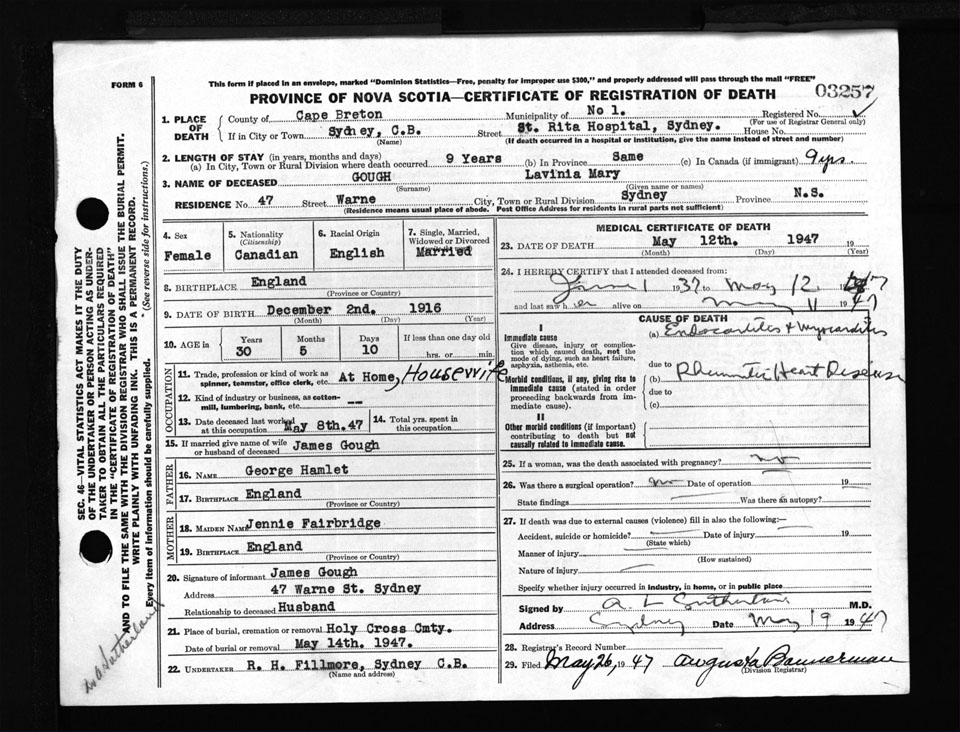 FORM 6
This form if placed in an envelope, marked "Dominion Statistics—Free, penalty for improper use $300," and properly addressed will pass through the mail "FREE"
PROVINCE OF NOVA SCOTIA—CERTIFICATE OF REGISTRATION OF DEATH
03257
1. PLACE OF DEATH
County of Cape Breton Municipality of No 1. Registered No.
(For use of Registrar General only)
If in City or Town Sydney, C.B. Street St. Rita Hospital, Sydney. House No.
(Name) (If death occurred in a hospital or institution, give the name instead of street and number)
2. LENGTH OF STAY (in years, months and days)
(a) In City, Town or Rural Division where death occurred 9 Years (b) In Province Same (c) In Canada (if immigrant) 9 yrs.
3. NAME OF DECEASED GOUGH Lavinia Mary
(Surname) (Given name or names)
RESIDENCE No. 47 Street Warne City, Town or Rural Division Sydney Province N.S.
(Residence means usual place of abode. Post Office Address for residents in rural parts not sufficient)
4. Sex
Female
5. Nationality
(Citizenship)
Canadian
6. Racial Origin
English
7. Single, Married, Widowed or Divorced
Married
8. BIRTHPLACE England
(Province or Country)
9. DATE OF BIRTH December 2nd. 1916
(Month) (Day) (Year)
10. AGE in Years Months Days If less than one day old
30 5 10 hrs. or min.
OCCUPATION
11. Trade, profession or kind of work as spinner, teamster, office clerk, etc. At Home, Housewife
12. Kind of industry or business, as cotton-mill, lumbering, bank, etc. --
13. Date deceased last worked at this occupation May 8th. 47
14. Total yrs. spent in this occupation
15. If married give name of wife or husband of deceased James Gough
FATHER
16. Name George Hamlet
17. Birthplace England
(Province or Country)
MOTHER
18. Maiden Name Jennie Fairbridge
19. Birthplace England
(Province or Country)
20. Signature of informant James Gough
Address 47 Warne St. Sydney
Relationship to deceased Husband
21. Place of burial, cremation or removal Holy Cross Cmty.
Date of burial or removal May 14th. 1947.
22. Undertaker R. H. Fillmore, Sydney C.B.
(Name and address)
MEDICAL CERTIFICATE OF DEATH
23. DATE OF DEATH May 12th. 1947 19
(Month) (Day) (Year)
24. I HEREBY CERTIFY that I attended deceased from:
June 1 1937 to May 12 1947
and last saw her alive on May 11 1947
CAUSE OF DEATH
I
Immediate cause
Give disease, injury or complication which caused death, not the mode of dying, such as heart failure, asphyxia, asthenia, etc.
(a) Endocarditis & Myocarditis
due to
Morbid conditions, if any, giving rise to immediate cause (stated in order proceeding backwards from immediate cause).
(b) Rheumatic Heart Disease
due to
(c)
II
Other morbid conditions (if important) contributing to death but not causally related to immediate cause.
25. If a woman, was the death associated with pregnancy? no
26. Was there a surgical operation? no Date of operation 19
State findings Was there an autopsy?
27. If death was due to external causes (violence) fill in also the following:—
Accident, suicide or homicide? Date of injury 19
(State which)
Manner of injury
(How sustained)
Nature of injury
Specify whether injury occurred in industry, in home, or in public place
Signed by A L Sutherland M.D.
Address Sydney Date May 19 1947
28. Registrar's Record Number
29. Filed May 26, 1947 Augusta Bannerman
(Division Registrar)
SEC. 46—VITAL STATISTICS ACT MAKES IT THE DUTY
OF THE UNDERTAKER OR PERSON ACTING AS UNDER-
TAKER TO OBTAIN ALL THE PARTICULARS REQUIRED
IN THE "CERTIFICATE OF REGISTRATION OF DEATH"
AND TO FILE THE SAME WITH THE DIVISION REGISTRAR WHO SHALL ISSUE THE BURIAL PERMIT.
WRITE PLAINLY WITH UNFADING INK. THIS IS A PERMANENT RECORD.
Every item of information should be carefully supplied. (See reverse side for instructions.)
Dr A Sutherland